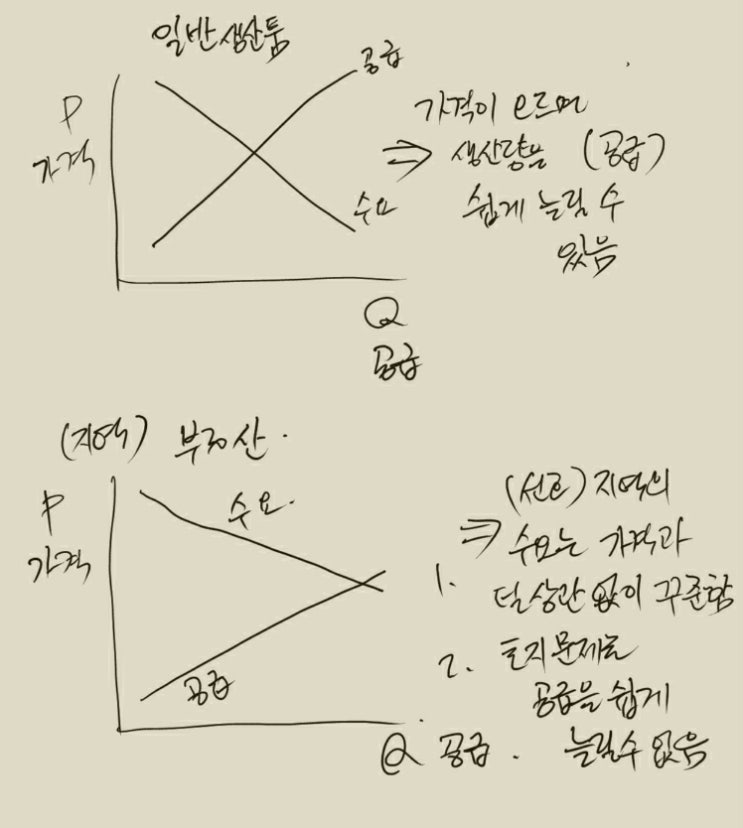 일반 생산품
P
가격
공급
수요
Q
공급
가격이 오르면
⇒ 생산량을 (공급)
쉽게 늘릴 수
있음
(지역) 부동산.
P
가격
수요.
공급
Q 공급.
(선호) 지역의
⇒ 수요는 가격과
1. 덜 상관없이 꾸준함
2. 토지문제로
공급을 쉽게
늘릴수 없음